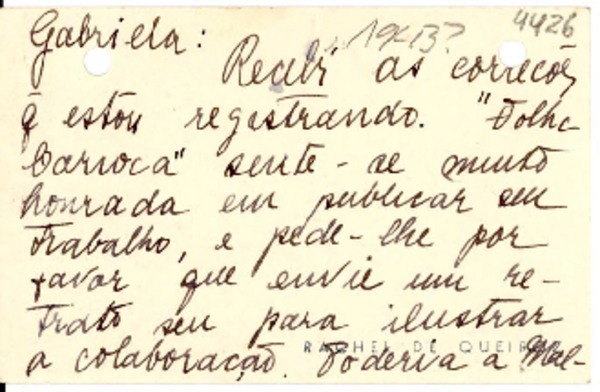 4426
1943?
Gabriela:
Recebi as correcões
q̃ estou registrando. "Folha
Carioca" sente-se muito
honrada em publicar seu
trabalho, e pede-lhe por
favor que envie um re-
trato seu para ilustrar
a colaboração. Poderia a Mal-
RACHEL DE QUEIROZ